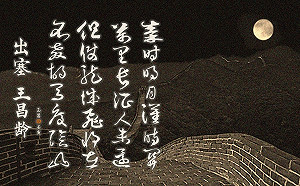 秦时明月汉时关
万里长征人未还
但使龙城飞将在
不教胡马度阴山
出塞 王昌龄